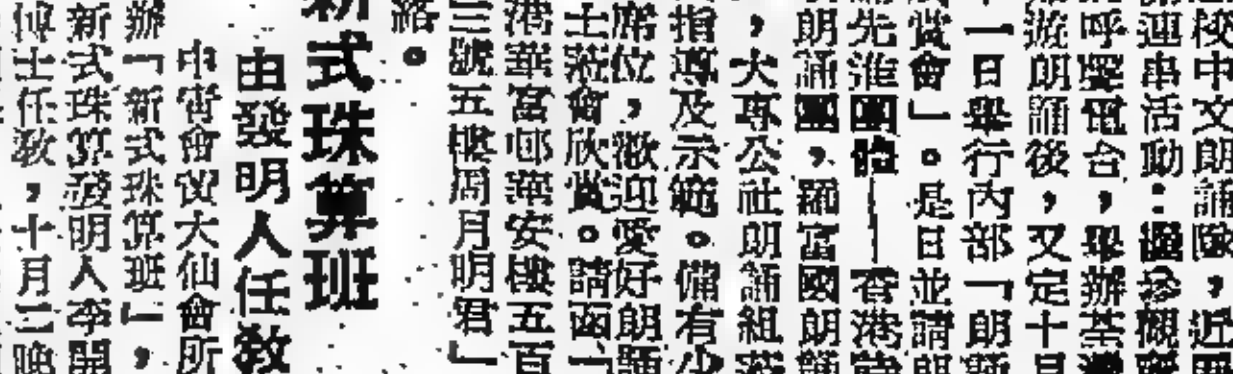 校中文朗誦隊，近
連串活動：繼參觀
呼聲電台，舉辦荃灣
遊朗誦後，又定十月
十一日舉行內部「朗誦
賞會」。是日並請朗
先進團體——香港詩
朗誦團，羅富國朗誦
，大專公社朗誦組蒞
指導及示範。備有少
席位，歡迎愛好朗誦
士蒞會欣賞。請函「
港華富邨華安樓五百
三號五樓周月明君」
絡。
新式珠算班
由發明人任教
中宵會議大仙會所
辦「新式珠算班」，
新式珠算發明人李開
博士任教，十月三晚